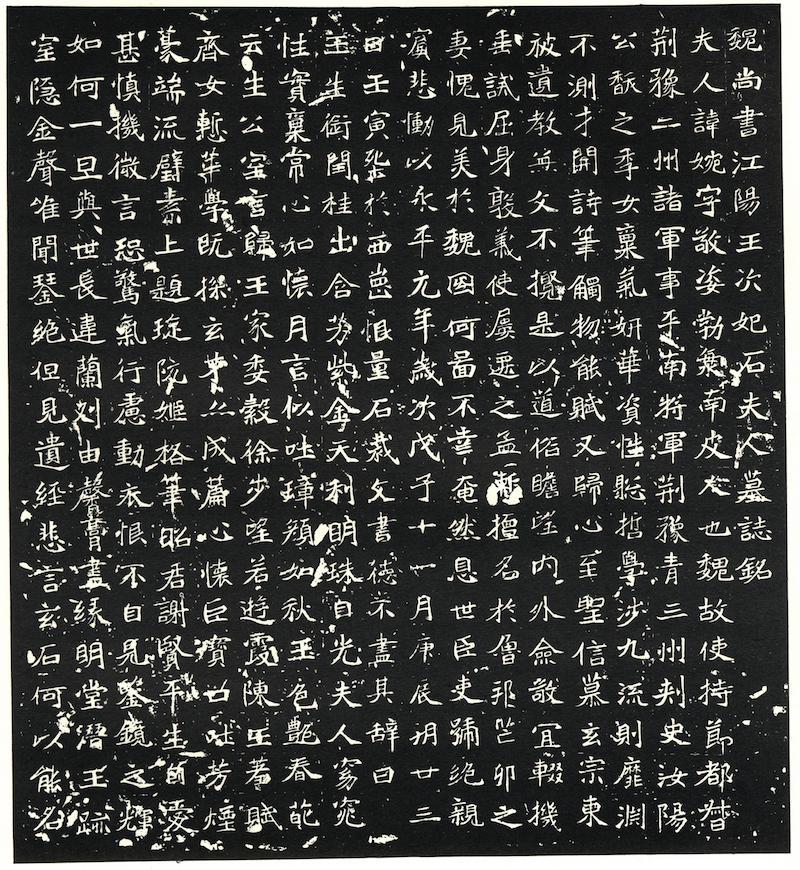 魏尚書江陽王次妃石夫人墓誌銘
夫人諱婉字敬姿勃海南皮人也魏故使持節都督
荊豫二州諸軍事平南將軍荊豫青三州刾史汝陽
公馛之季女稟氣妍華資性聡哲學涉九流則靡淵
不測才關詩筆觸物能賦又歸心至聖信慕玄宗東
被遺教無文不攬是以道俗瞻望內外僉敬冝輟機
垂誡屈身敦義使屢遷之孟暫擅名於魯邦芒卯之
妻愧見美於魏國何啚不幸奄然息世臣吏號絕親
賓悲慟以永平元年歲次戊子十一月庚辰朔廿三
日壬寅塟於西崗恨量石裁文書德不盡其辞曰
玉生衘閏桂出含芳紫金天利明珠自光夫人窈窕
性實稟常心如懷月言似吐璋顏如秋玉色艷春葩
云生公室言歸王家委縠徐步望若遊霞陳王羞賦
齊女慙華學既操玄筆亦成篇心懷巨寶口吐芳煙
篆端流璧素上題琁阮姬格筆昭君謝賢平生自愛
甚慎機微言恐驚氣行慮動衣恨不自見鑒鏡之輝
如何一旦與世長違蘭刈由馨膏盡緣明堂潛玉跡
室隱金聲唯聞琴絕但見遺經悲言玄石何以能名